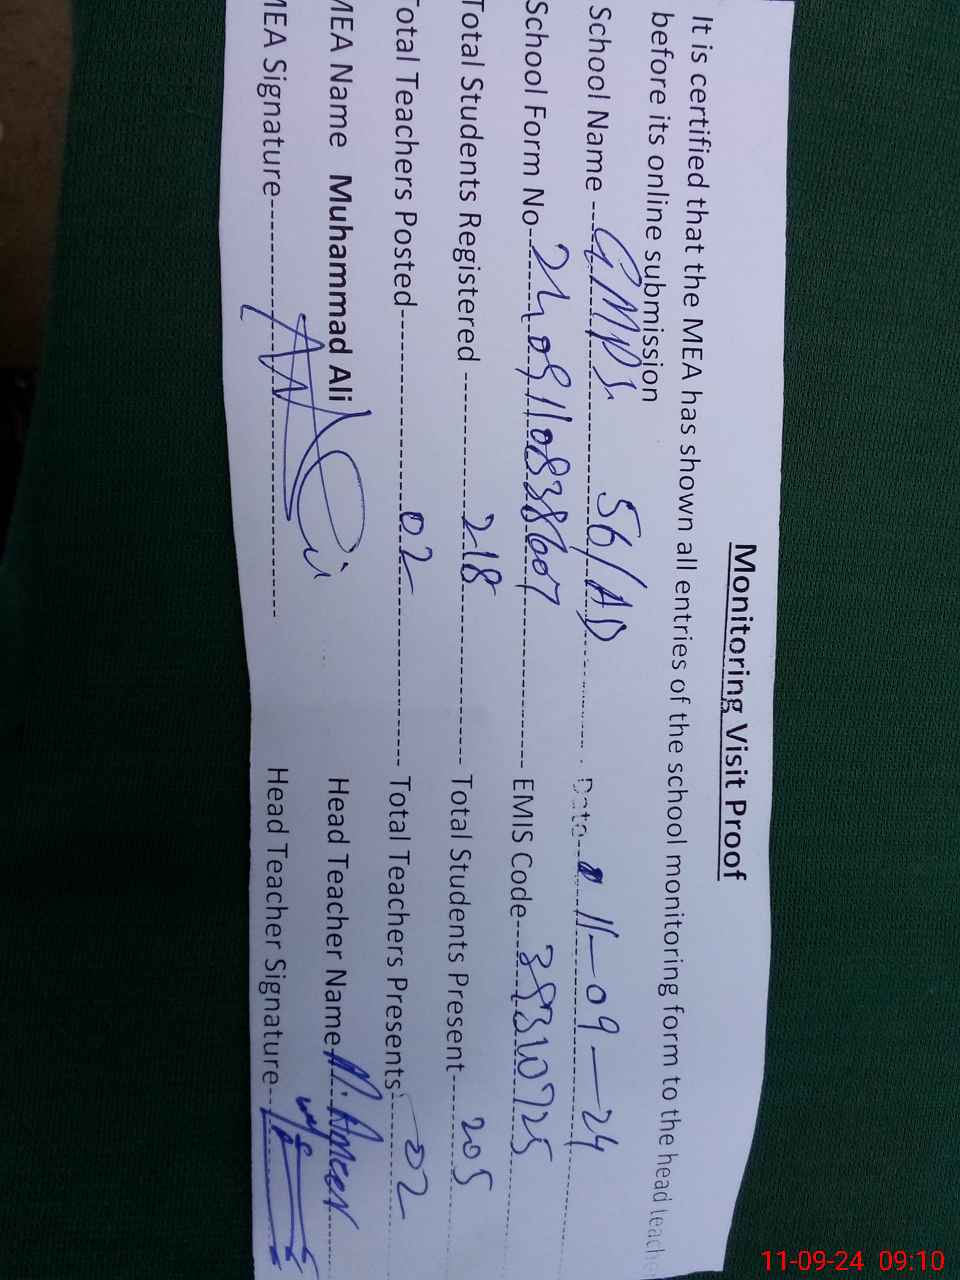 Monitoring Visit Proof
It is certified that the MEA has shown all entries of the school monitoring form to the head teache
before its online submission
School Name GMPS. 56/AD Date 11-09-24
School Form No 2409110838607 EMIS Code 38310725
Total Students Registered 218 Total Students Present 205
Total Teachers Posted 02 Total Teachers Presents 02
MEA Name Muhammad Ali Head Teacher Name M. Ameen
MEA Signature Head Teacher Signature
11-09-24 09:10